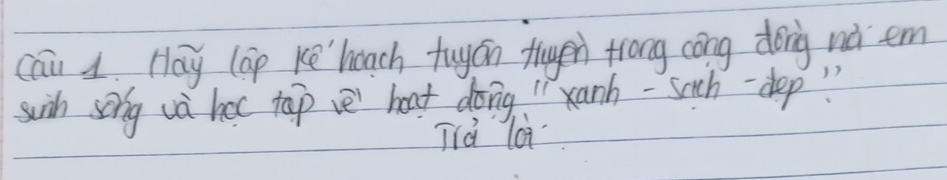 Câu 1. Hãy lập kế hoạch tuyên truyền trong cộng đồng nơi em
sinh sống và học tập về hoạt động "xanh - sạch - đẹp".
Trả lời: